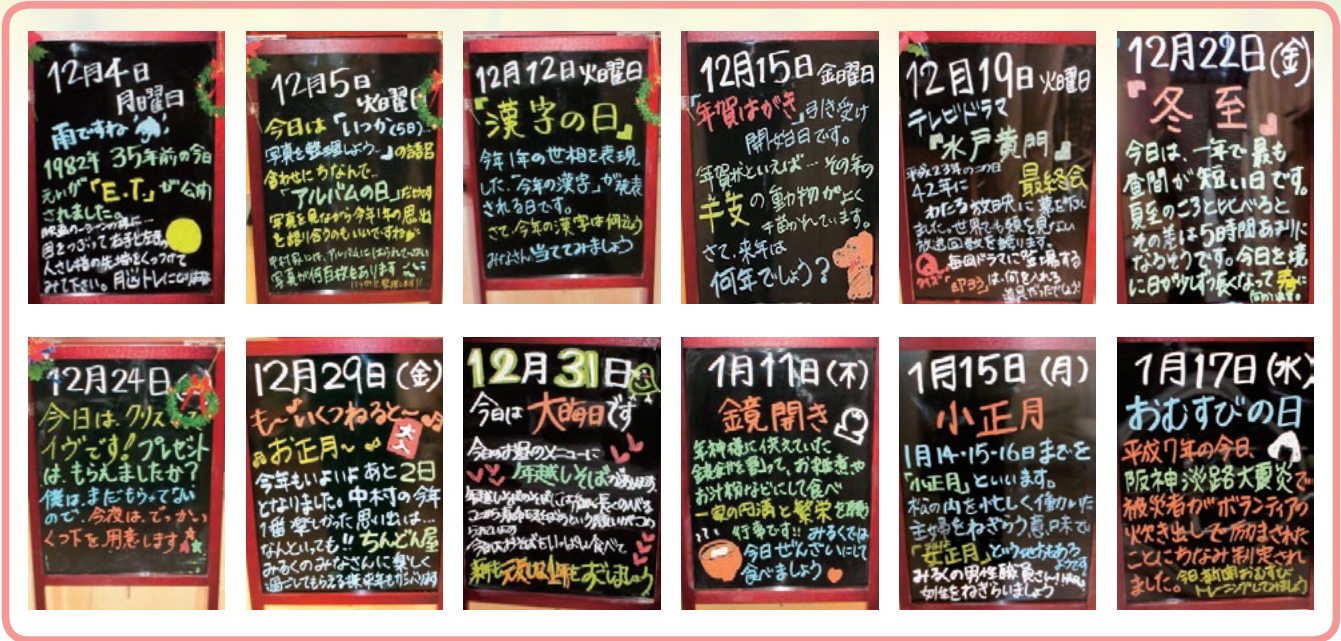 12月4日
月曜日
雨ですね
1982年 35年前の今日
えいが「E.T.」が公開
されました。
目をつぶって右手と左手の
人さし指の先端をくっつけて
みて下さい。
12月5日
火曜日
今日は「いつか(5日)…
写真を整理しよう…」の語呂
合わせにちなんで…
「アルバムの日」だそうです
写真を見ながら今年1年の思い出
を語り合うのもいいですね
写真が何百枚もあります
12月12日 火曜日
『漢字の日』
今年1年の世相を表現
した、「今年の漢字」が発表
される日です。
さて、今年の漢字は何でしょう
みなさん当ててみましょう
12月15日 金曜日
「年賀はがき」引き受け
開始日です。
年賀状といえば…その年の
干支の動物がよく
描かれています。
さて、来年は
何年でしょう?
12月19日 火曜日
テレビドラマ
『水戸黄門』
平成23年のこの日
42年に 最終会
わたる放映に幕を下ろし
ました。世界でも類を見ない
放送回数を誇ります。
Q クイズ 毎回ドラマに登場する
印ろうは、何を入れる
道具だったでしょう!
12月22日(金)
『冬至』
今日は、一年で最も
昼間が短い日です。
夏至のころと比べると
その差は5時間あまりに
なるそうです。今日を境
に日が少しずつ長くなって春に
向かいます。
12月24日
今日は、クリスマス
イヴです!プレゼント
は、もらえましたか?
僕は、まだもらってない
ので、今夜は、でっかい
くつ下を用意します
12月29日(金)
も〜いくつねると〜
お正月〜
大入
今年もいよいよあと2日
となりました。中村の今年
1番楽しかった思い出は…
なんといっても!!ちんどん屋
みるくのみなさんに楽しく
過ごしてもらえる様来年もがんばります
12月31日
今日は大晦日です
今日のお昼のメニューに
年越しそばがあります
今日はおそばをいっぱい食べて
1月11日(木)
鏡開き
年神様に供えていた
鏡餅を割って、お雑煮や
お汁粉などにして食べ
一家の円満と繁栄を願う
行事です!!みるくでは
今日ぜんざいにして
食べましょう
1月15日(月)
小正月
1月14・15・16日までを
「小正月」といいます。
松の内を忙しく働いた
主婦をねぎらう意味で
「女正月」という地方もある
ようです
みるくの男性職員さん!
女性をねぎらいましょう
1月17日(水)
おむすびの日
平成7年の今日、
阪神淡路大震災で
被災者がボランティアの
炊き出しで励まされた
ことにちなみ制定され
ました。今日新聞おむすび
トレーニングしてみましょう